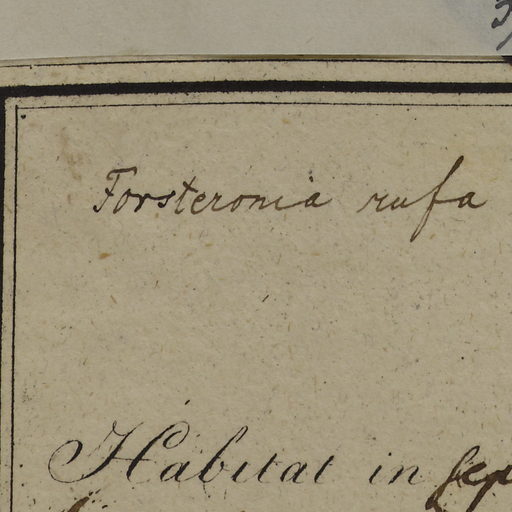 Forsteronia rufa
Habitat in